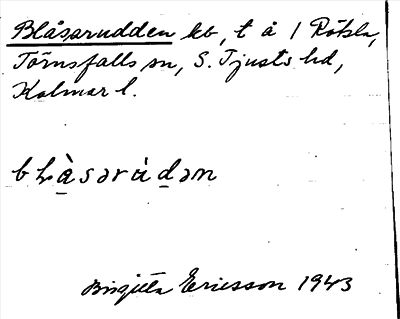 Blåsarudden kb, t å 1 Rötsla,
Törnsfalls sn, S. Tjusts hd,
Kalmar l.
blàsərúdən
Birgitta Ericsson 1943